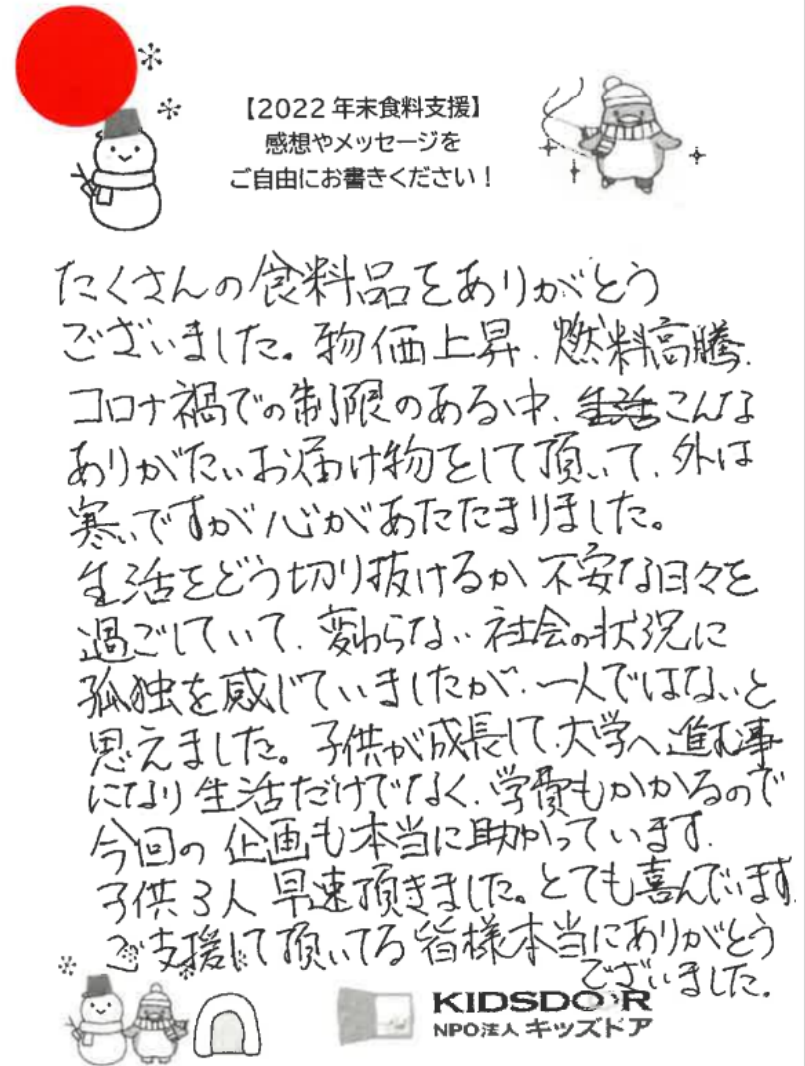 【2022 年末食料支援】
感想やメッセージを
ご自由にお書きください！
たくさんの食料品をありがとう
ございました。物価上昇、燃料高騰、
コロナ禍での制限のある中、生活こんな
ありがたいお届け物をして頂いて、外は
寒いですが心があたたまりました。
生活をどう切り抜けるか不安な日々を
過ごしていて、変わらない社会の状況に
孤独を感じていましたが、一人ではないと
思えました。子供が成長して、大学へ進む事
になり生活だけでなく、学費もかかるので
今回の企画も本当に助かっています。
子供3人早速頂きました。とても喜んでいます。
ご支援して頂いてる皆様本当にありがとう
ございました。
KIDSDOOR
NPO法人 キッズドア